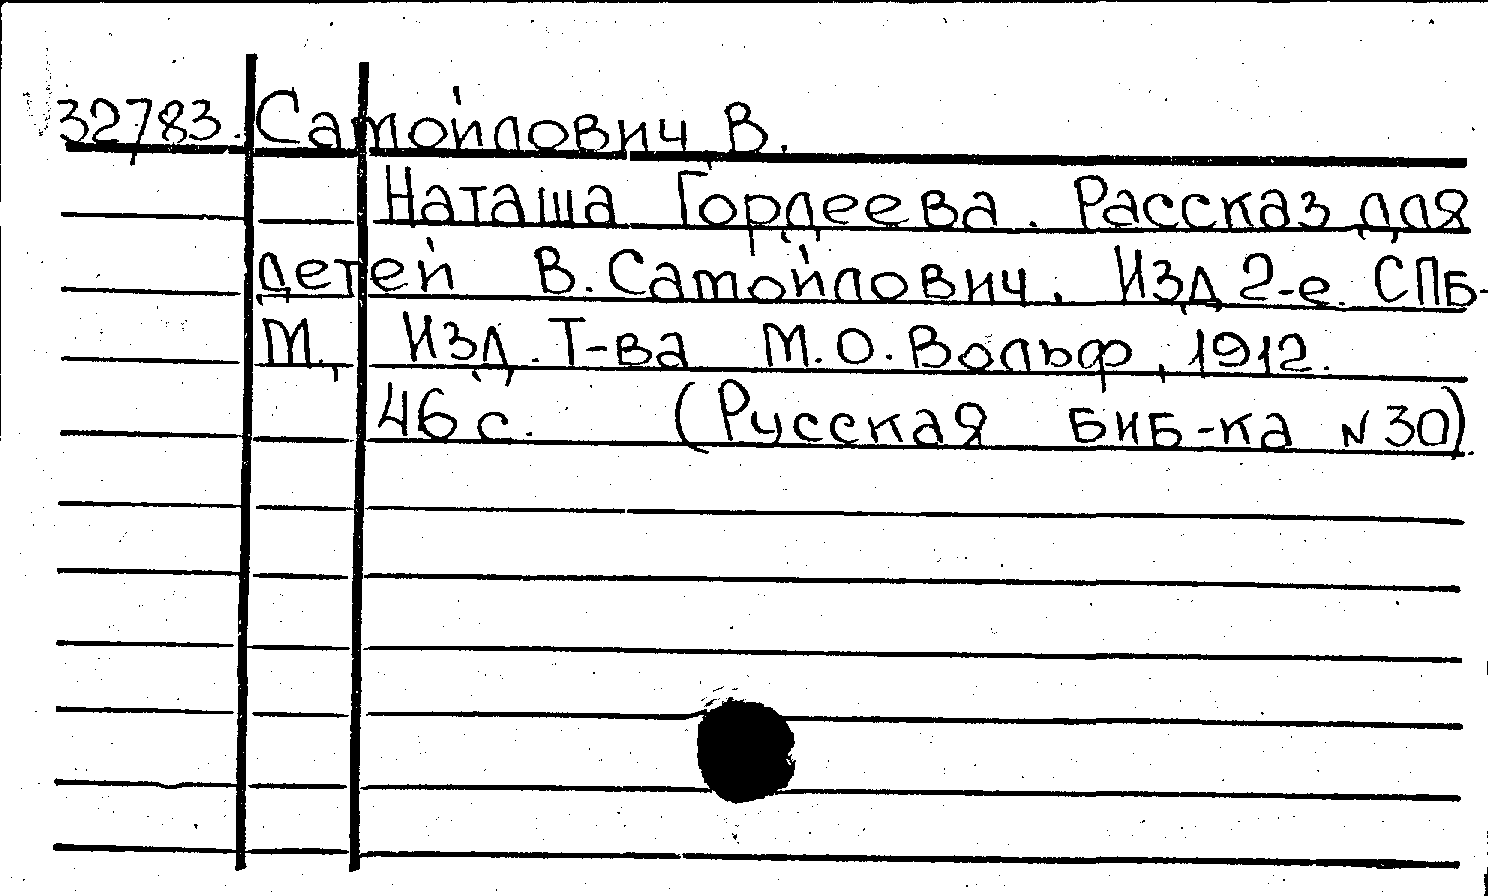 32783. Самойлович, В.
Наташа Гордеева. Рассказ для
детей В. Самойлович. Изд 2-е. СПБ-
М., Изд. Т-ва М.О. Вольф, 1912.
46 с. (Русская биб-ка N 30).